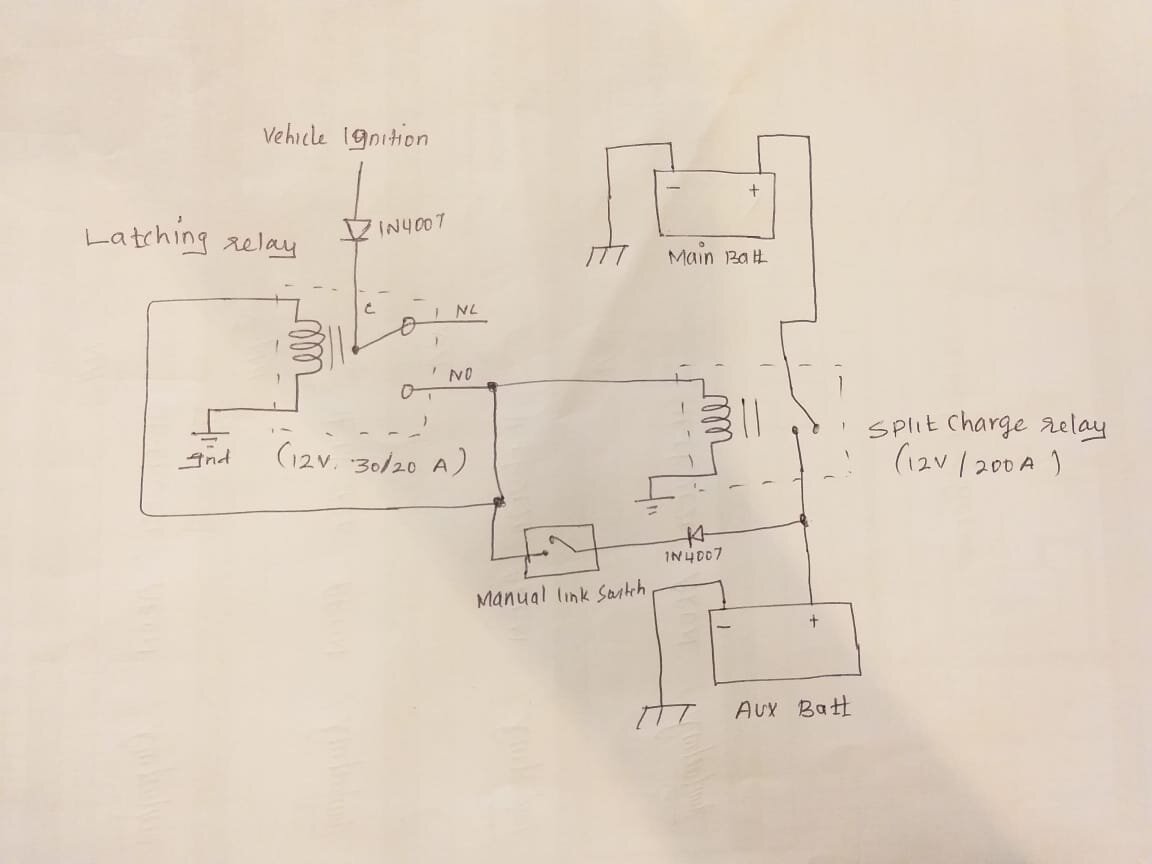 Vehicle Ignition
1N4007
Latching relay
C
NC
NO
gnd
(12V. 30/20 A)
- +
Main Batt
Split Charge relay
(12V / 200A )
1N4007
Manual link Switch
- +
Aux Batt